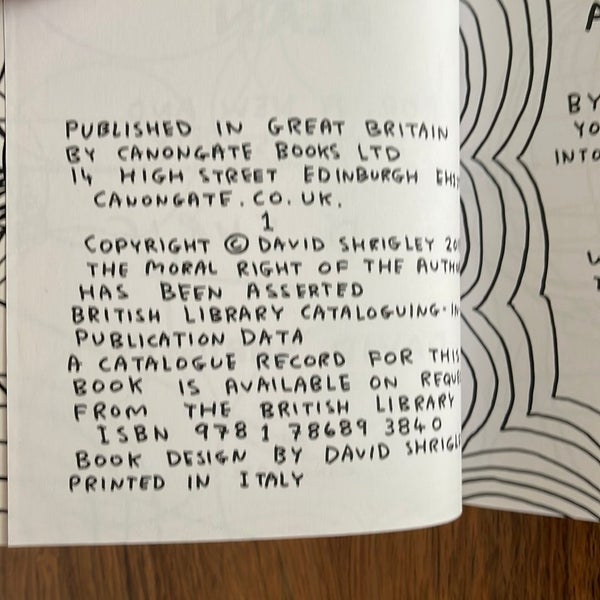 PUBLISHED IN GREAT BRITAIN
BY CANONGATE BOOKS LTD
14 HIGH STREET EDINBURGH
CANONGATE.CO.UK.
1
COPYRIGHT © DAVID SHRIGLEY
THE MORAL RIGHT OF THE
HAS BEEN ASSERTED
BRITISH LIBRARY CATALOGUING-IN
PUBLICATION DATA
A CATALOGUE RECORD FOR THIS
BOOK IS AVAILABLE ON
FROM THE BRITISH LIBRARY
ISBN 978 1 78689 384 0
BOOK DESIGN BY DAVID
PRINTED IN ITALY
BY
YO
INTO